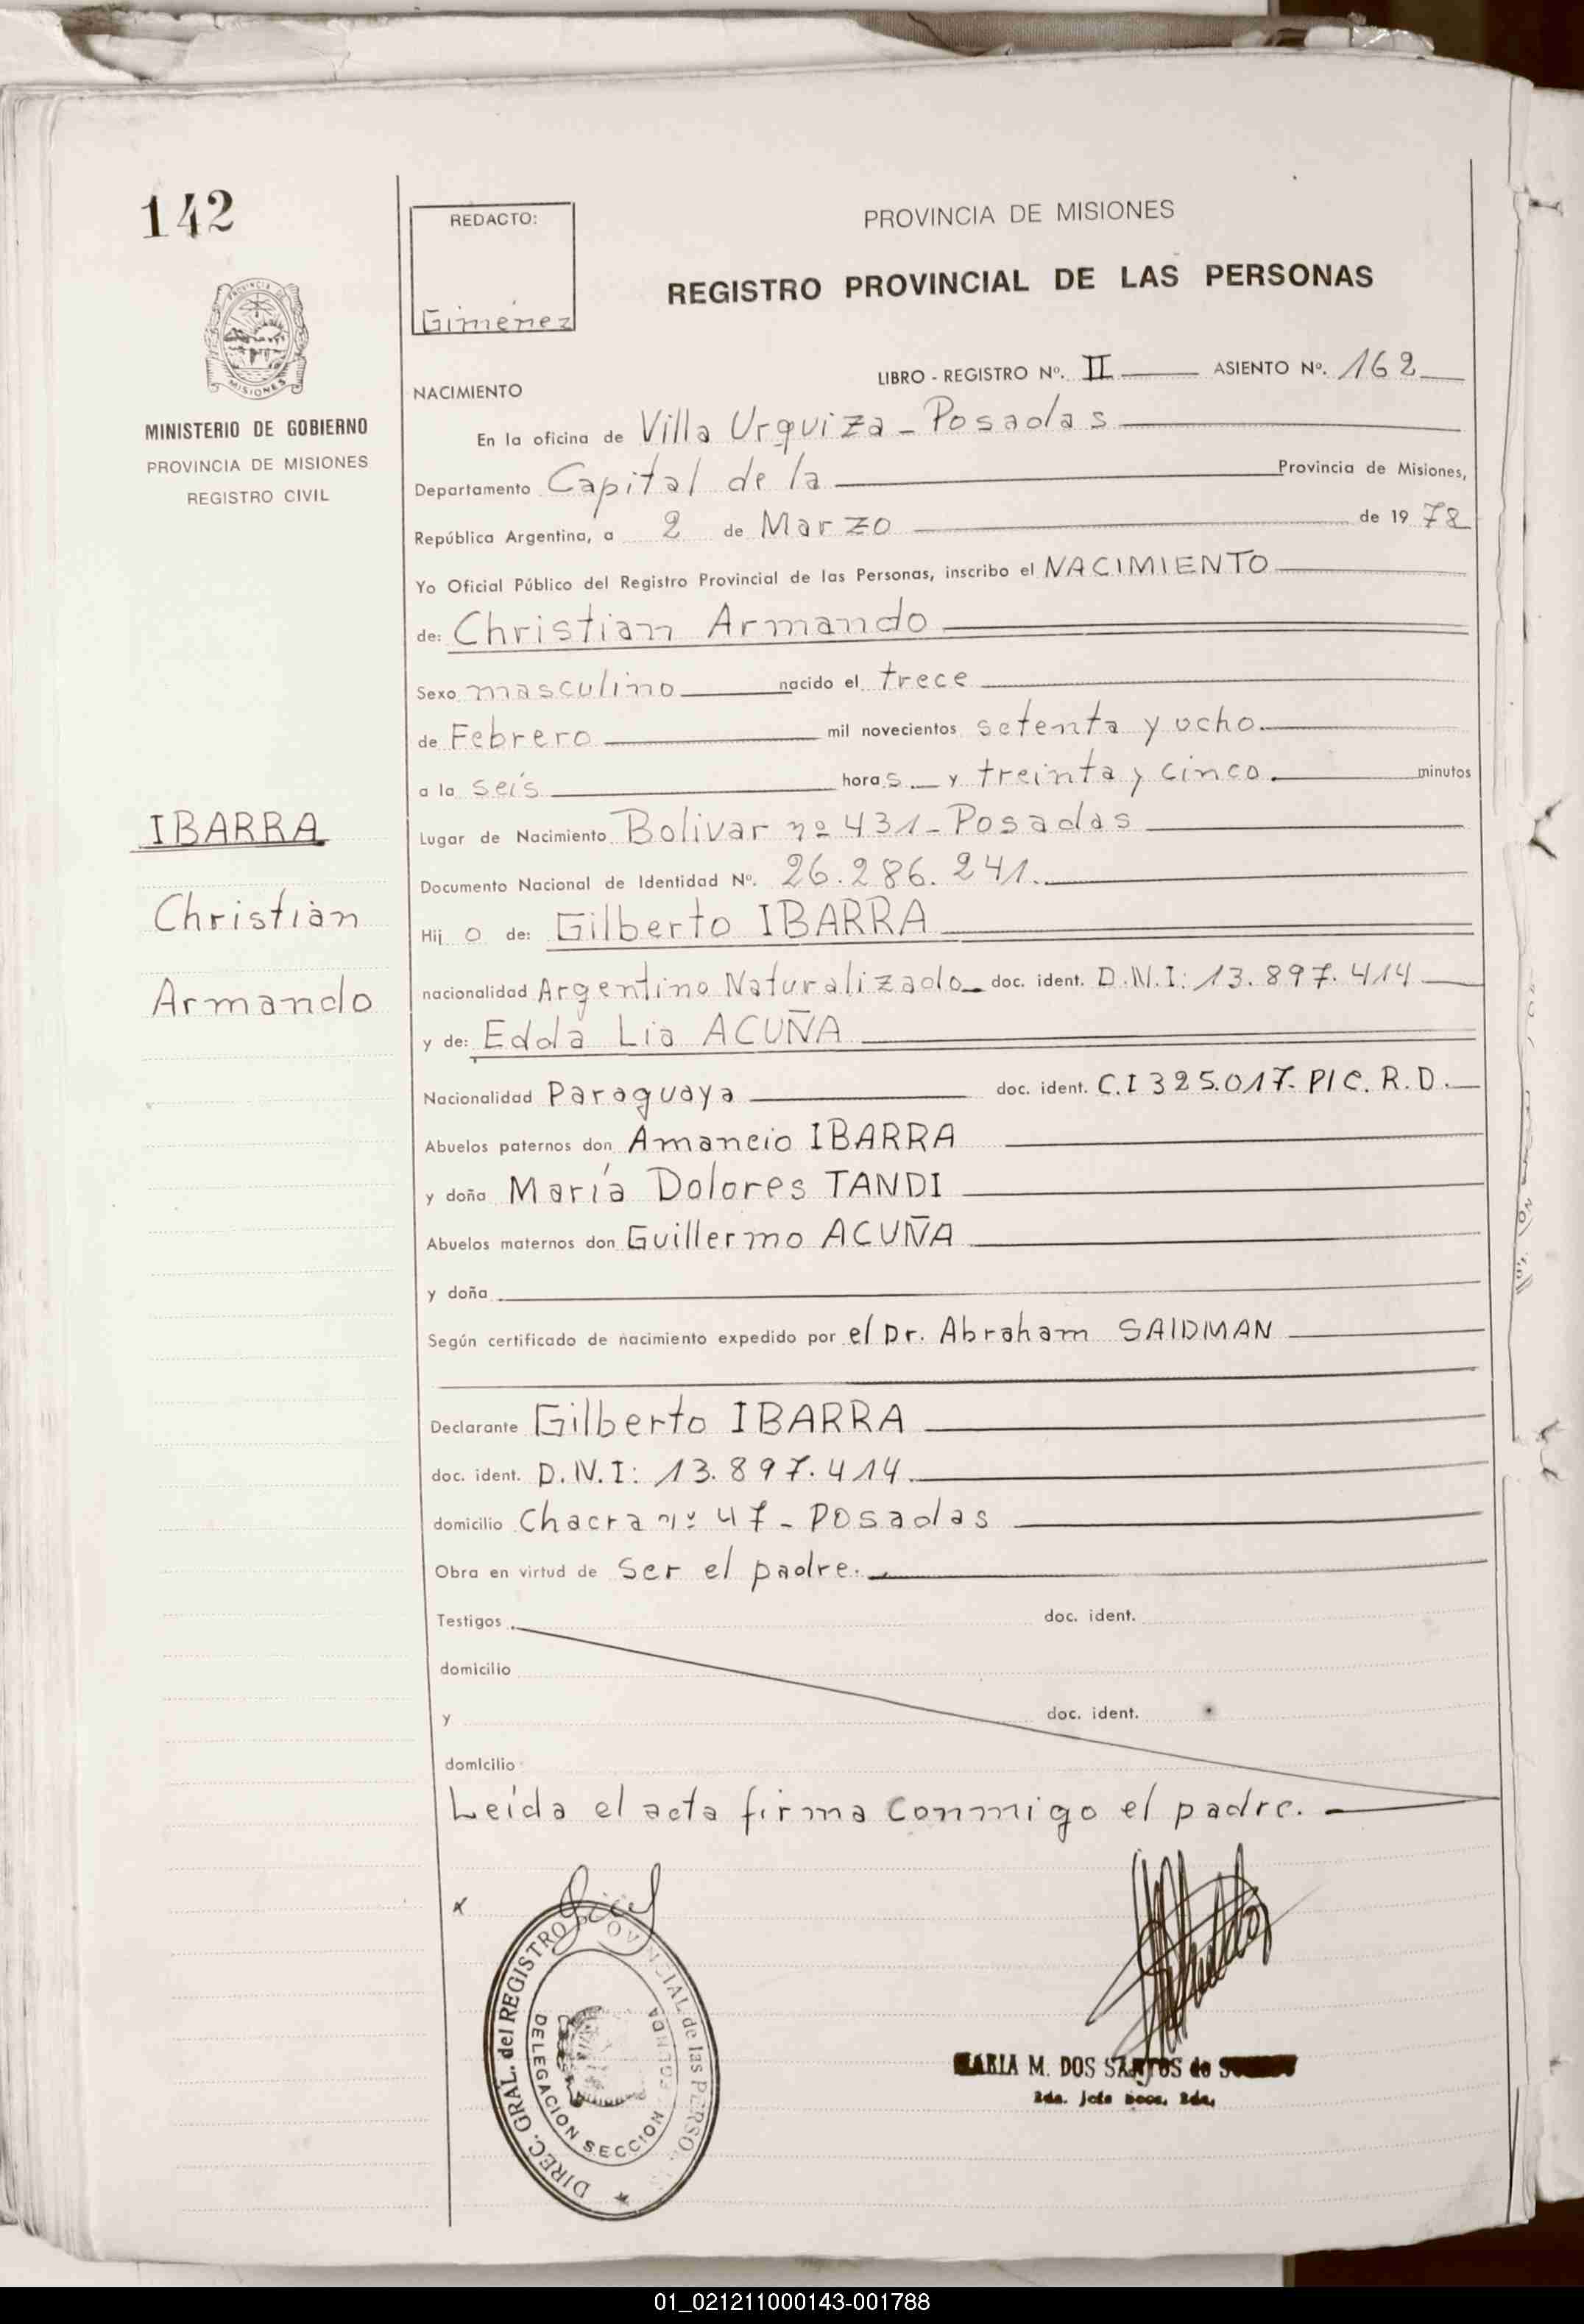 142
PROVINCIA DE MISIONES
MINISTERIO DE GOBIERNO
PROVINCIA DE MISIONES
REGISTRO CIVIL
IBARRA
Christian
Armando
REDACTO:
Gimenez
PROVINCIA DE MISIONES
REGISTRO PROVINCIAL DE LAS PERSONAS
LIBRO - REGISTRO Nº. II ASIENTO Nº. 162
NACIMIENTO
En la oficina de Villa Urquiza - Posadas
Departamento Capital de la Provincia de Misiones,
República Argentina, a 2 de Marzo de 1978
Yo Oficial Público del Registro Provincial de las Personas, inscribo el NACIMIENTO
de: Christian Armando
Sexo masculino nacido el trece
de Febrero mil novecientos setenta y ocho.
a la seis horas y treinta y cinco. minutos
Lugar de Nacimiento Bolivar nº 431 - Posadas
Documento Nacional de Identidad Nº. 26.286.241.
Hij o de: Gilberto IBARRA
nacionalidad Argentino Naturalizado doc. ident. D.N.I: 13.897.414
y de: Edda Lia ACUÑA
Nacionalidad Paraguaya doc. ident. C.I 325.017- P/C.R.D.
Abuelos paternos don Amancio IBARRA
y doña María Dolores TANDI
Abuelos maternos don Guillermo ACUÑA
y doña
Según certificado de nacimiento expedido por el Dr. Abraham SAIDMAN
Declarante Gilberto IBARRA
doc. ident. D.N.I: 13.897.414.
domicilio Chacra nº 47 - Posadas
Obra en virtud de ser el padre.
Testigos doc. ident.
domicilio
y doc. ident.
domicilio
Leída el acta firma conmigo el padre.
DIREC. GRAL. del REGISTRO PROVINCIAL de las PERSO
DELEGACION SECCION
MARIA M. DOS SANTOS de
2da. Jefe Secc. 2da.
01_021211000143-001788